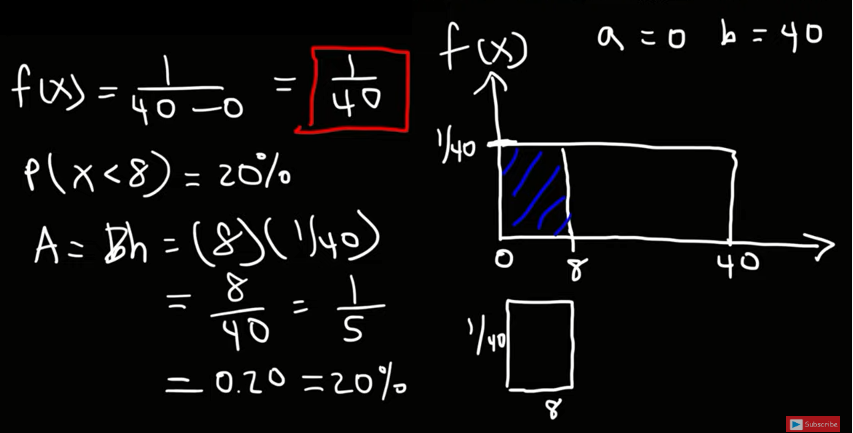 f(x) = 1/(40 - 0) = 1/40
P(x < 8) = 20%
A = bh = (8)(1/40)
= 8/40 = 1/5
= 0.20 = 20%
a = 0 b = 40
f(x)
1/40
0 8 40
1/40
8
Subscribe